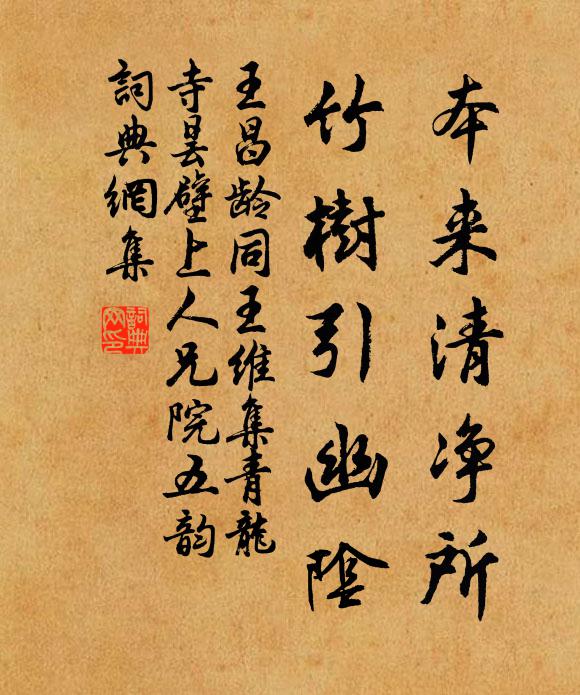 本来清净所
竹樹引幽陰
王昌龄同王维集青龍
寺昙壁上人兄院五韵
詞典網集
詞典
网印